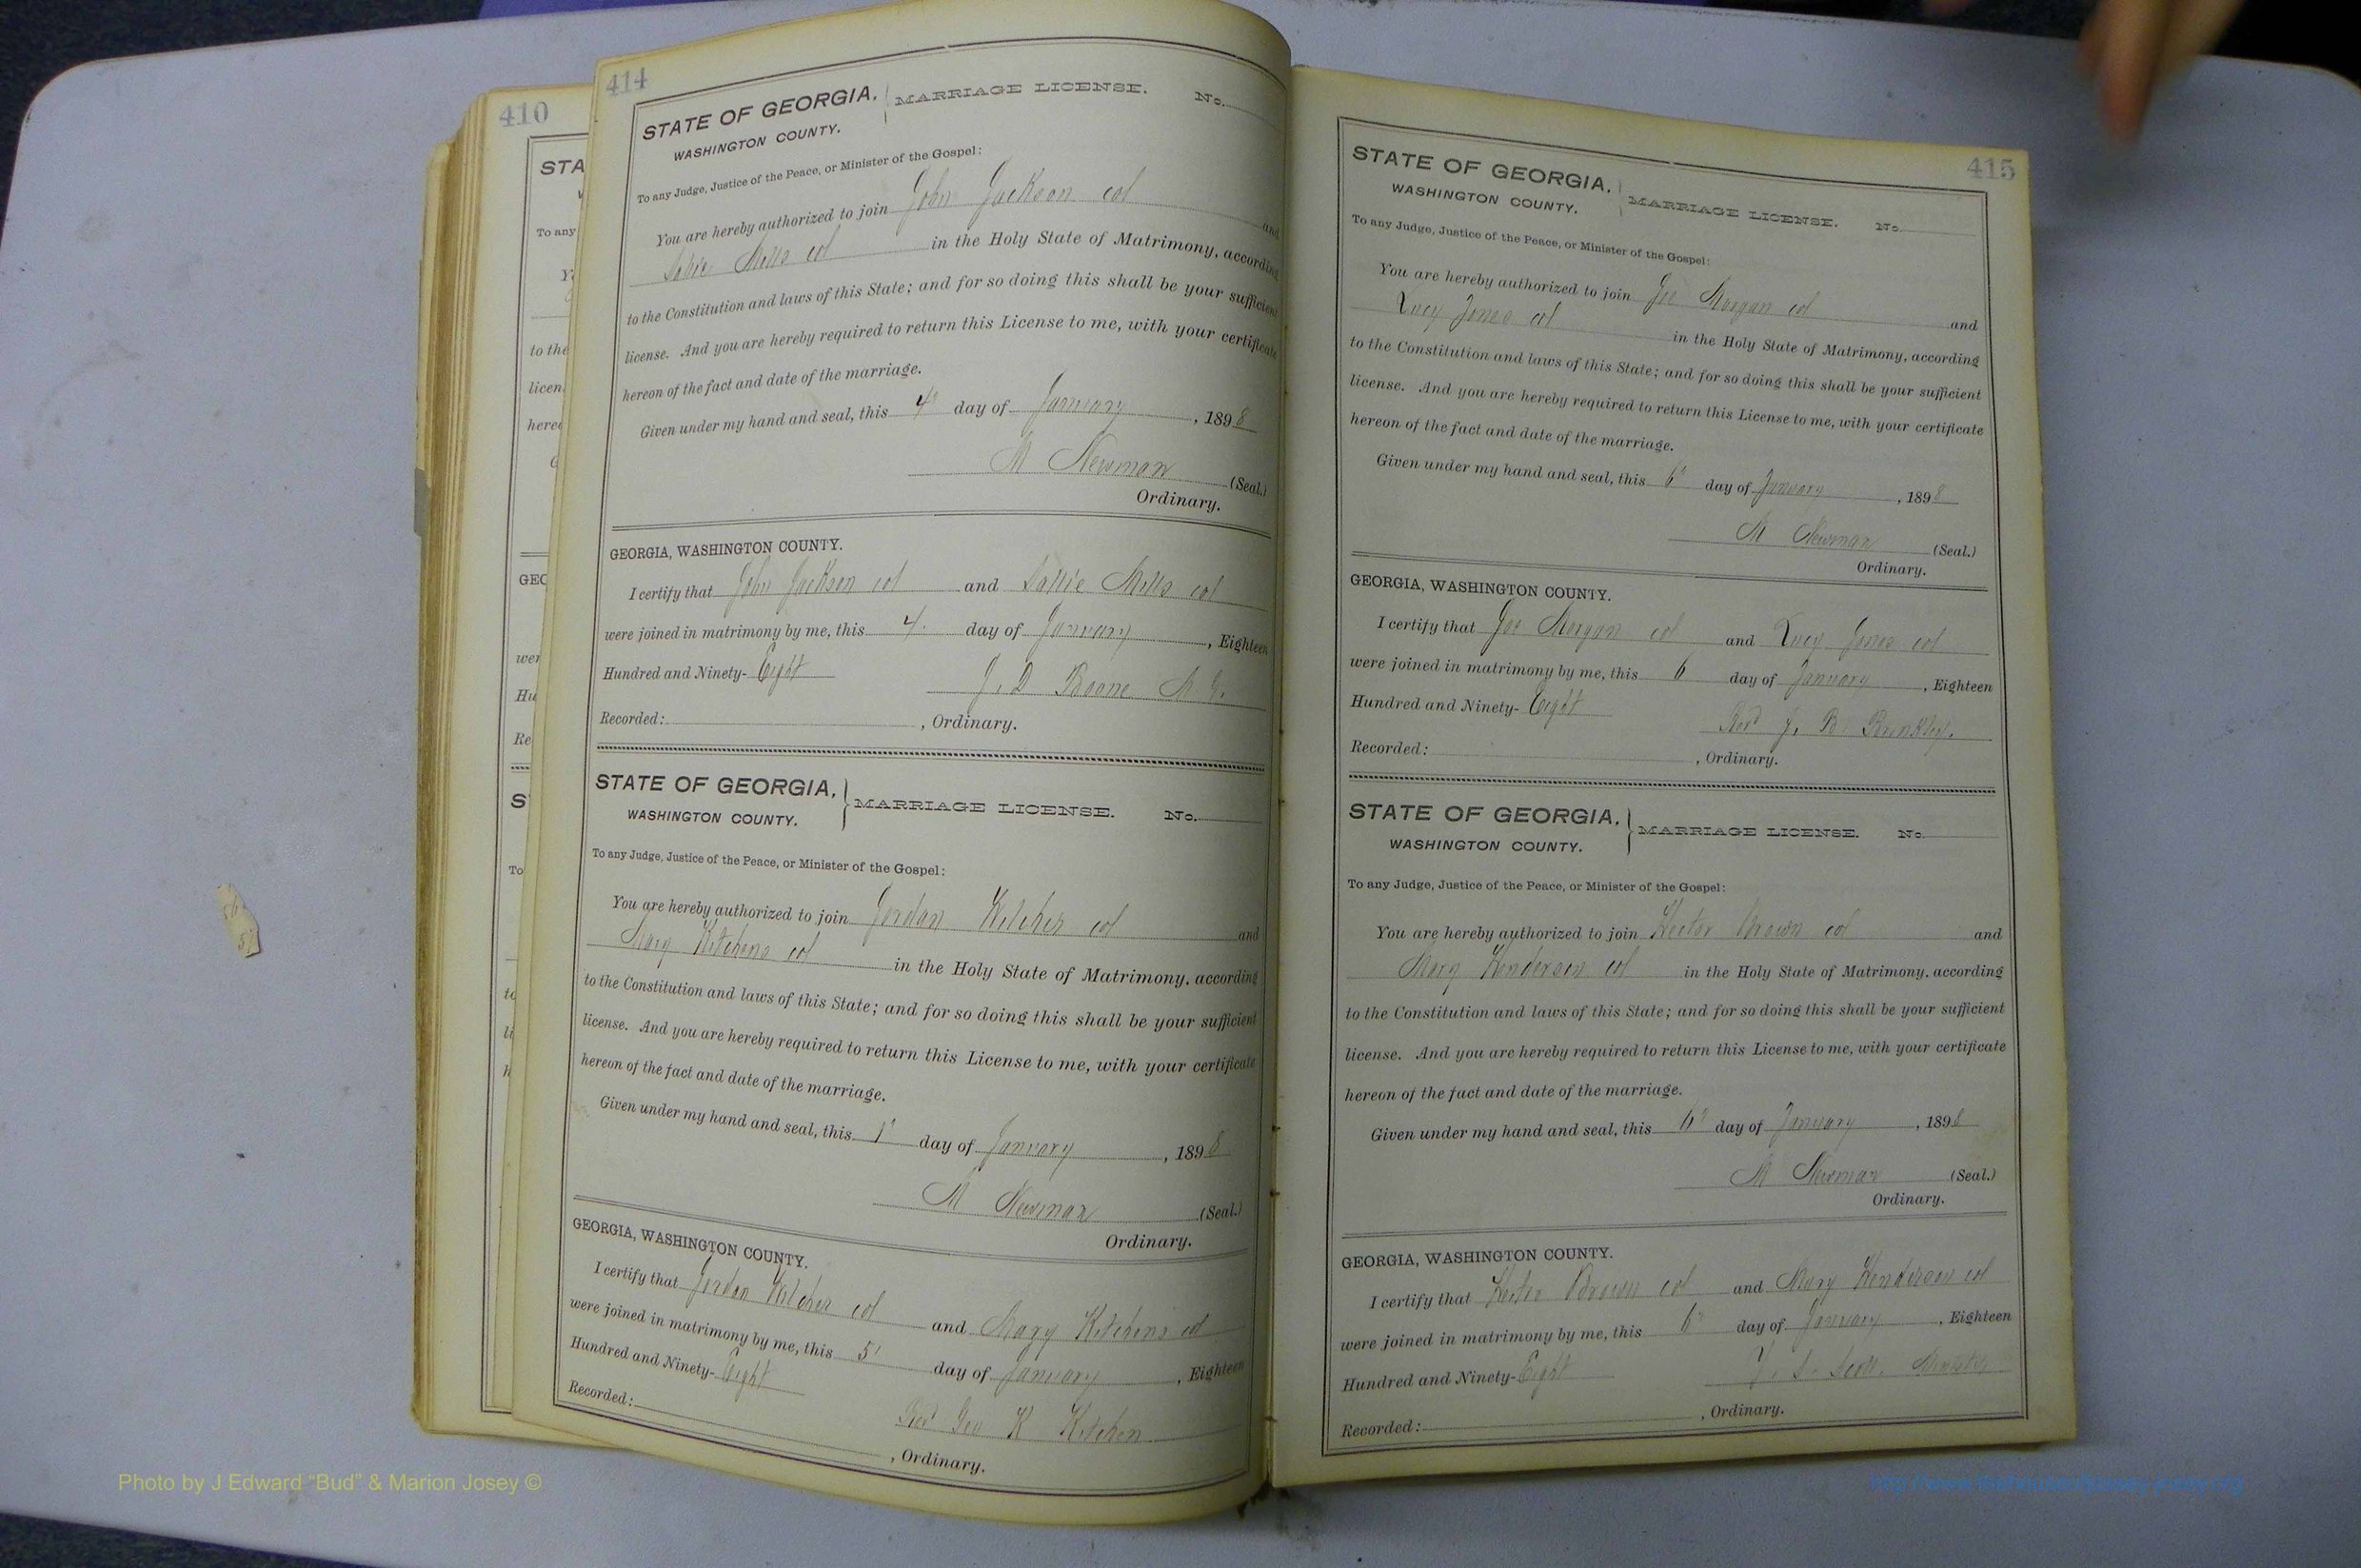 410
STA
To any
to the
licen
GEO
wer
Hu
Re
S
To
414
STATE OF GEORGIA,
WASHINGTON COUNTY.
MARRIAGE LICENSE. No.
To any Judge, Justice of the Peace, or Minister of the Gospel:
You are hereby authorized to join John Jackson col and
Sallie Mills col in the Holy State of Matrimony, according
to the Constitution and laws of this State; and for so doing this shall be your sufficient
license. And you are hereby required to return this License to me, with your certificate
hereon of the fact and date of the marriage.
Given under my hand and seal, this 4" day of January, 1898
M Newman (Seal.)
Ordinary.
GEORGIA, WASHINGTON COUNTY.
I certify that John Jackson col and Sallie Mills col
were joined in matrimony by me, this 4 day of January, Eighteen
Hundred and Ninety-Eight J. D Boone M G.
Recorded: , Ordinary.
STATE OF GEORGIA,
WASHINGTON COUNTY.
MARRIAGE LICENSE. No.
To any Judge, Justice of the Peace, or Minister of the Gospel:
You are hereby authorized to join Jordan Wilcher col and
Mary Kitchens col in the Holy State of Matrimony, according
to the Constitution and laws of this State; and for so doing this shall be your sufficient
license. And you are hereby required to return this License to me, with your certificate
hereon of the fact and date of the marriage.
Given under my hand and seal, this 1" day of January, 1898
M Newman (Seal.)
Ordinary.
GEORGIA, WASHINGTON COUNTY.
I certify that Jordan Wilcher col and Mary Kitchens col
were joined in matrimony by me, this 5' day of January, Eighteen
Hundred and Ninety-Eight
Rev Geo K Kitchen
Recorded: , Ordinary.
415
STATE OF GEORGIA,
WASHINGTON COUNTY.
MARRIAGE LICENSE. No.
To any Judge, Justice of the Peace, or Minister of the Gospel:
You are hereby authorized to join Joe Morgan col and
Lucy Jones col in the Holy State of Matrimony, according
to the Constitution and laws of this State; and for so doing this shall be your sufficient
license. And you are hereby required to return this License to me, with your certificate
hereon of the fact and date of the marriage.
Given under my hand and seal, this 6" day of January, 1898
M Newman (Seal.)
Ordinary.
GEORGIA, WASHINGTON COUNTY.
I certify that Joe Morgan col and Lucy Jones col
were joined in matrimony by me, this 6 day of January, Eighteen
Hundred and Ninety-Eight Rev J. B.
Recorded: , Ordinary.
STATE OF GEORGIA,
WASHINGTON COUNTY.
MARRIAGE LICENSE. No.
To any Judge, Justice of the Peace, or Minister of the Gospel:
You are hereby authorized to join Hector Brown col and
Mary Henderson col in the Holy State of Matrimony, according
to the Constitution and laws of this State; and for so doing this shall be your sufficient
license. And you are hereby required to return this License to me, with your certificate
hereon of the fact and date of the marriage.
Given under my hand and seal, this 6" day of January, 1898
M Newman (Seal.)
Ordinary.
GEORGIA, WASHINGTON COUNTY.
I certify that Hector Brown col and Mary Henderson col
were joined in matrimony by me, this 6" day of January, Eighteen
Hundred and Ninety-Eight S. Scott, Minister
Recorded: , Ordinary.
Photo by J Edward “Bud” & Marion Josey ©